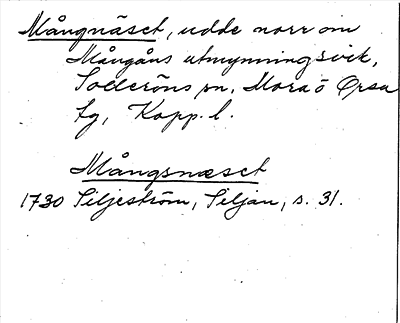 Mångnäset, udde norr om
Mångåns utmynningsvik,
Solleröns sn, Mora o Orsa
tg, Kopp. l.
Mångsnæset
1730 Siljeström, Siljan, s. 31.